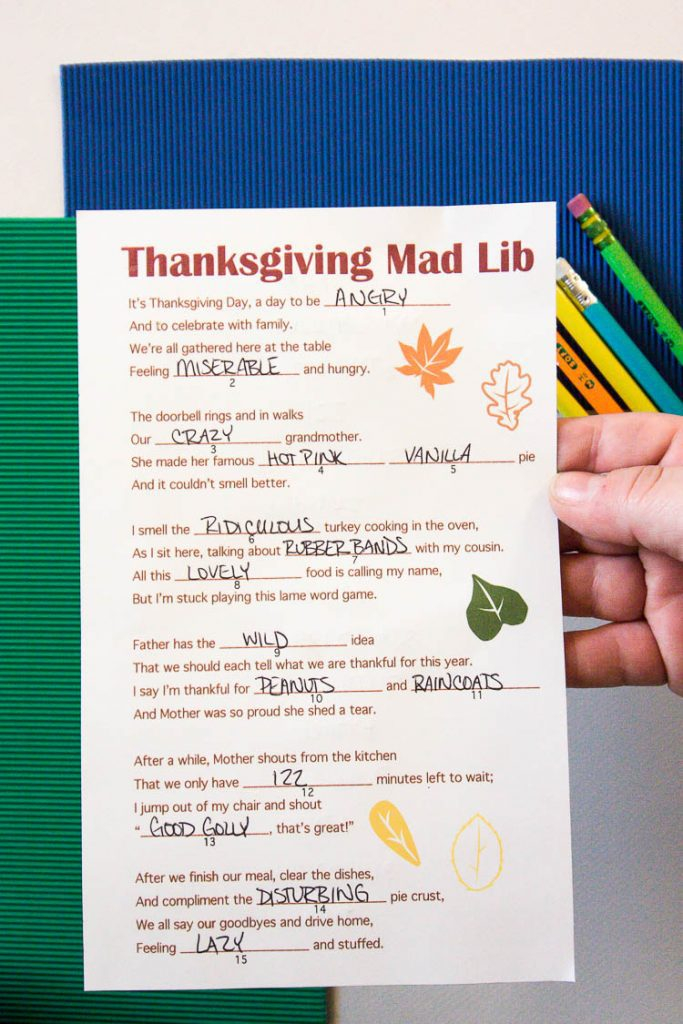 Thanksgiving Mad Lib
It's Thanksgiving Day, a day to be ANGRY
1
And to celebrate with family.
We're all gathered here at the table
Feeling MISERABLE and hungry.
2
The doorbell rings and in walks
Our CRAZY grandmother.
3
She made her famous HOT PINK VANILLA pie
4 5
And it couldn't smell better.
I smell the RIDICULOUS turkey cooking in the oven,
6
As I sit here, talking about RUBBER BANDS with my cousin.
7
All this LOVELY food is calling my name,
8
But I'm stuck playing this lame word game.
Father has the WILD idea
9
That we should each tell what we are thankful for this year.
I say I'm thankful for PEANUTS and RAINCOATS
10 11
And Mother was so proud she shed a tear.
After a while, Mother shouts from the kitchen
That we only have 122 minutes left to wait;
12
I jump out of my chair and shout
"GOOD GOLLY, that's great!"
13
After we finish our meal, clear the dishes,
And compliment the DISTURBING pie crust,
14
We all say our goodbyes and drive home,
Feeling LAZY and stuffed.
15